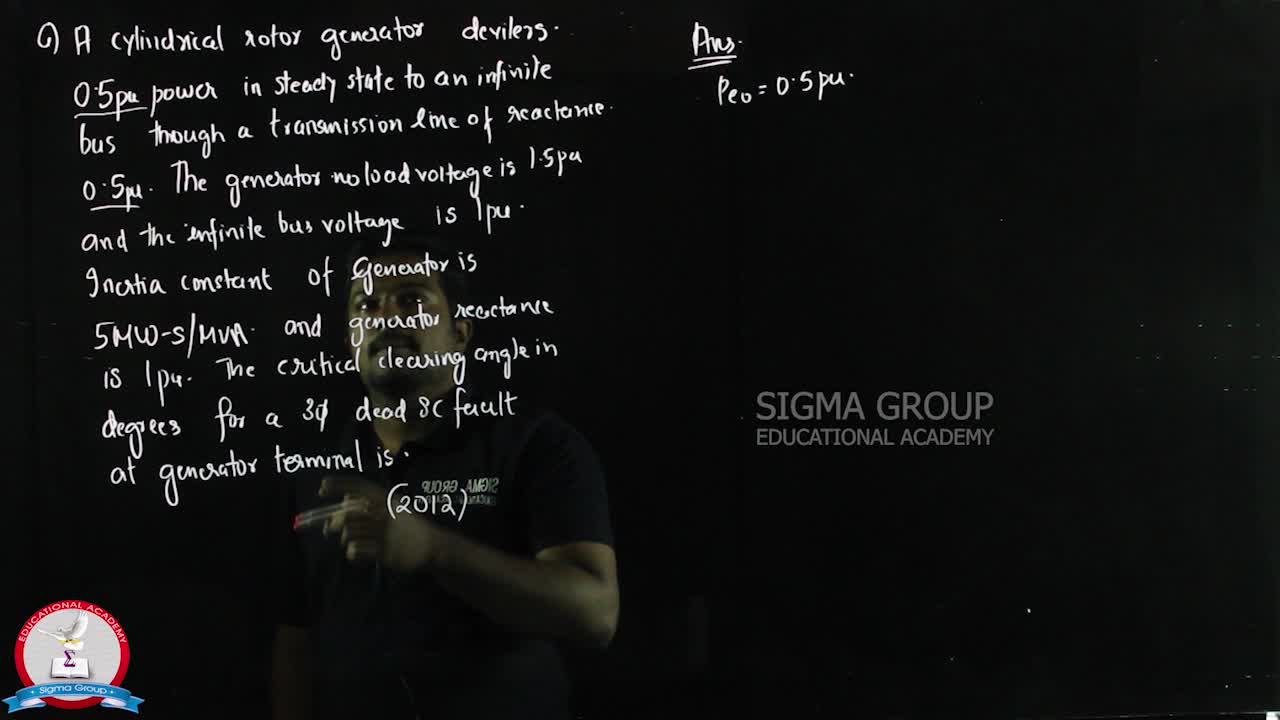 Q) A cylindrical rotor generator devilers.
0.5pu power in steady state to an infinite
bus though a transmission line of reactance.
0.5pu. The generator no load voltage is 1.5pu
and the infinite bus voltage is 1pu.
Inertia constant of Generator is
5MW-S/MVA. and generator reactance
is 1pu. The critical clearing angle in
degrees for a 3φ dead SC fault
at generator terminal is.
(2012)
Ans.
Peo = 0.5pu.
SIGMA GROUP
EDUCATIONAL ACADEMY
SIGMA GROUP
EDUCATIONAL ACADEMY
Σ
Sigma Group